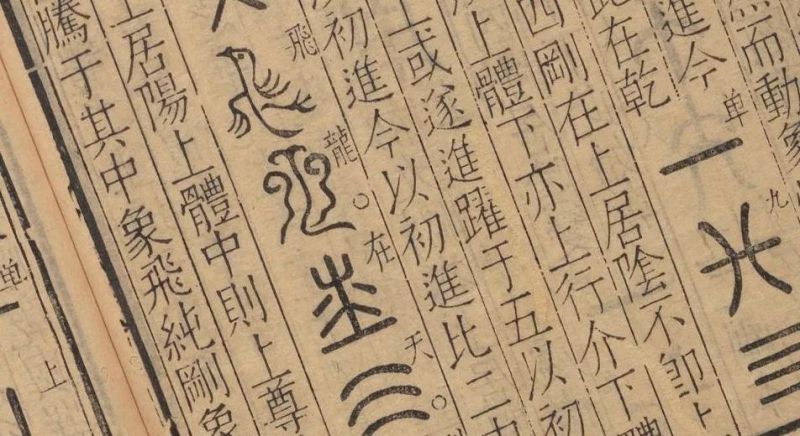 而動象
進今
此在乾
单一
九
四剛在上居陰不卽上
上體下亦上行介下體
上或遂進躍于五以初
以初進今以初進比二
飛龍。在天。
上居陽上體中則上尊
騰于其中象飛純剛象
单
上